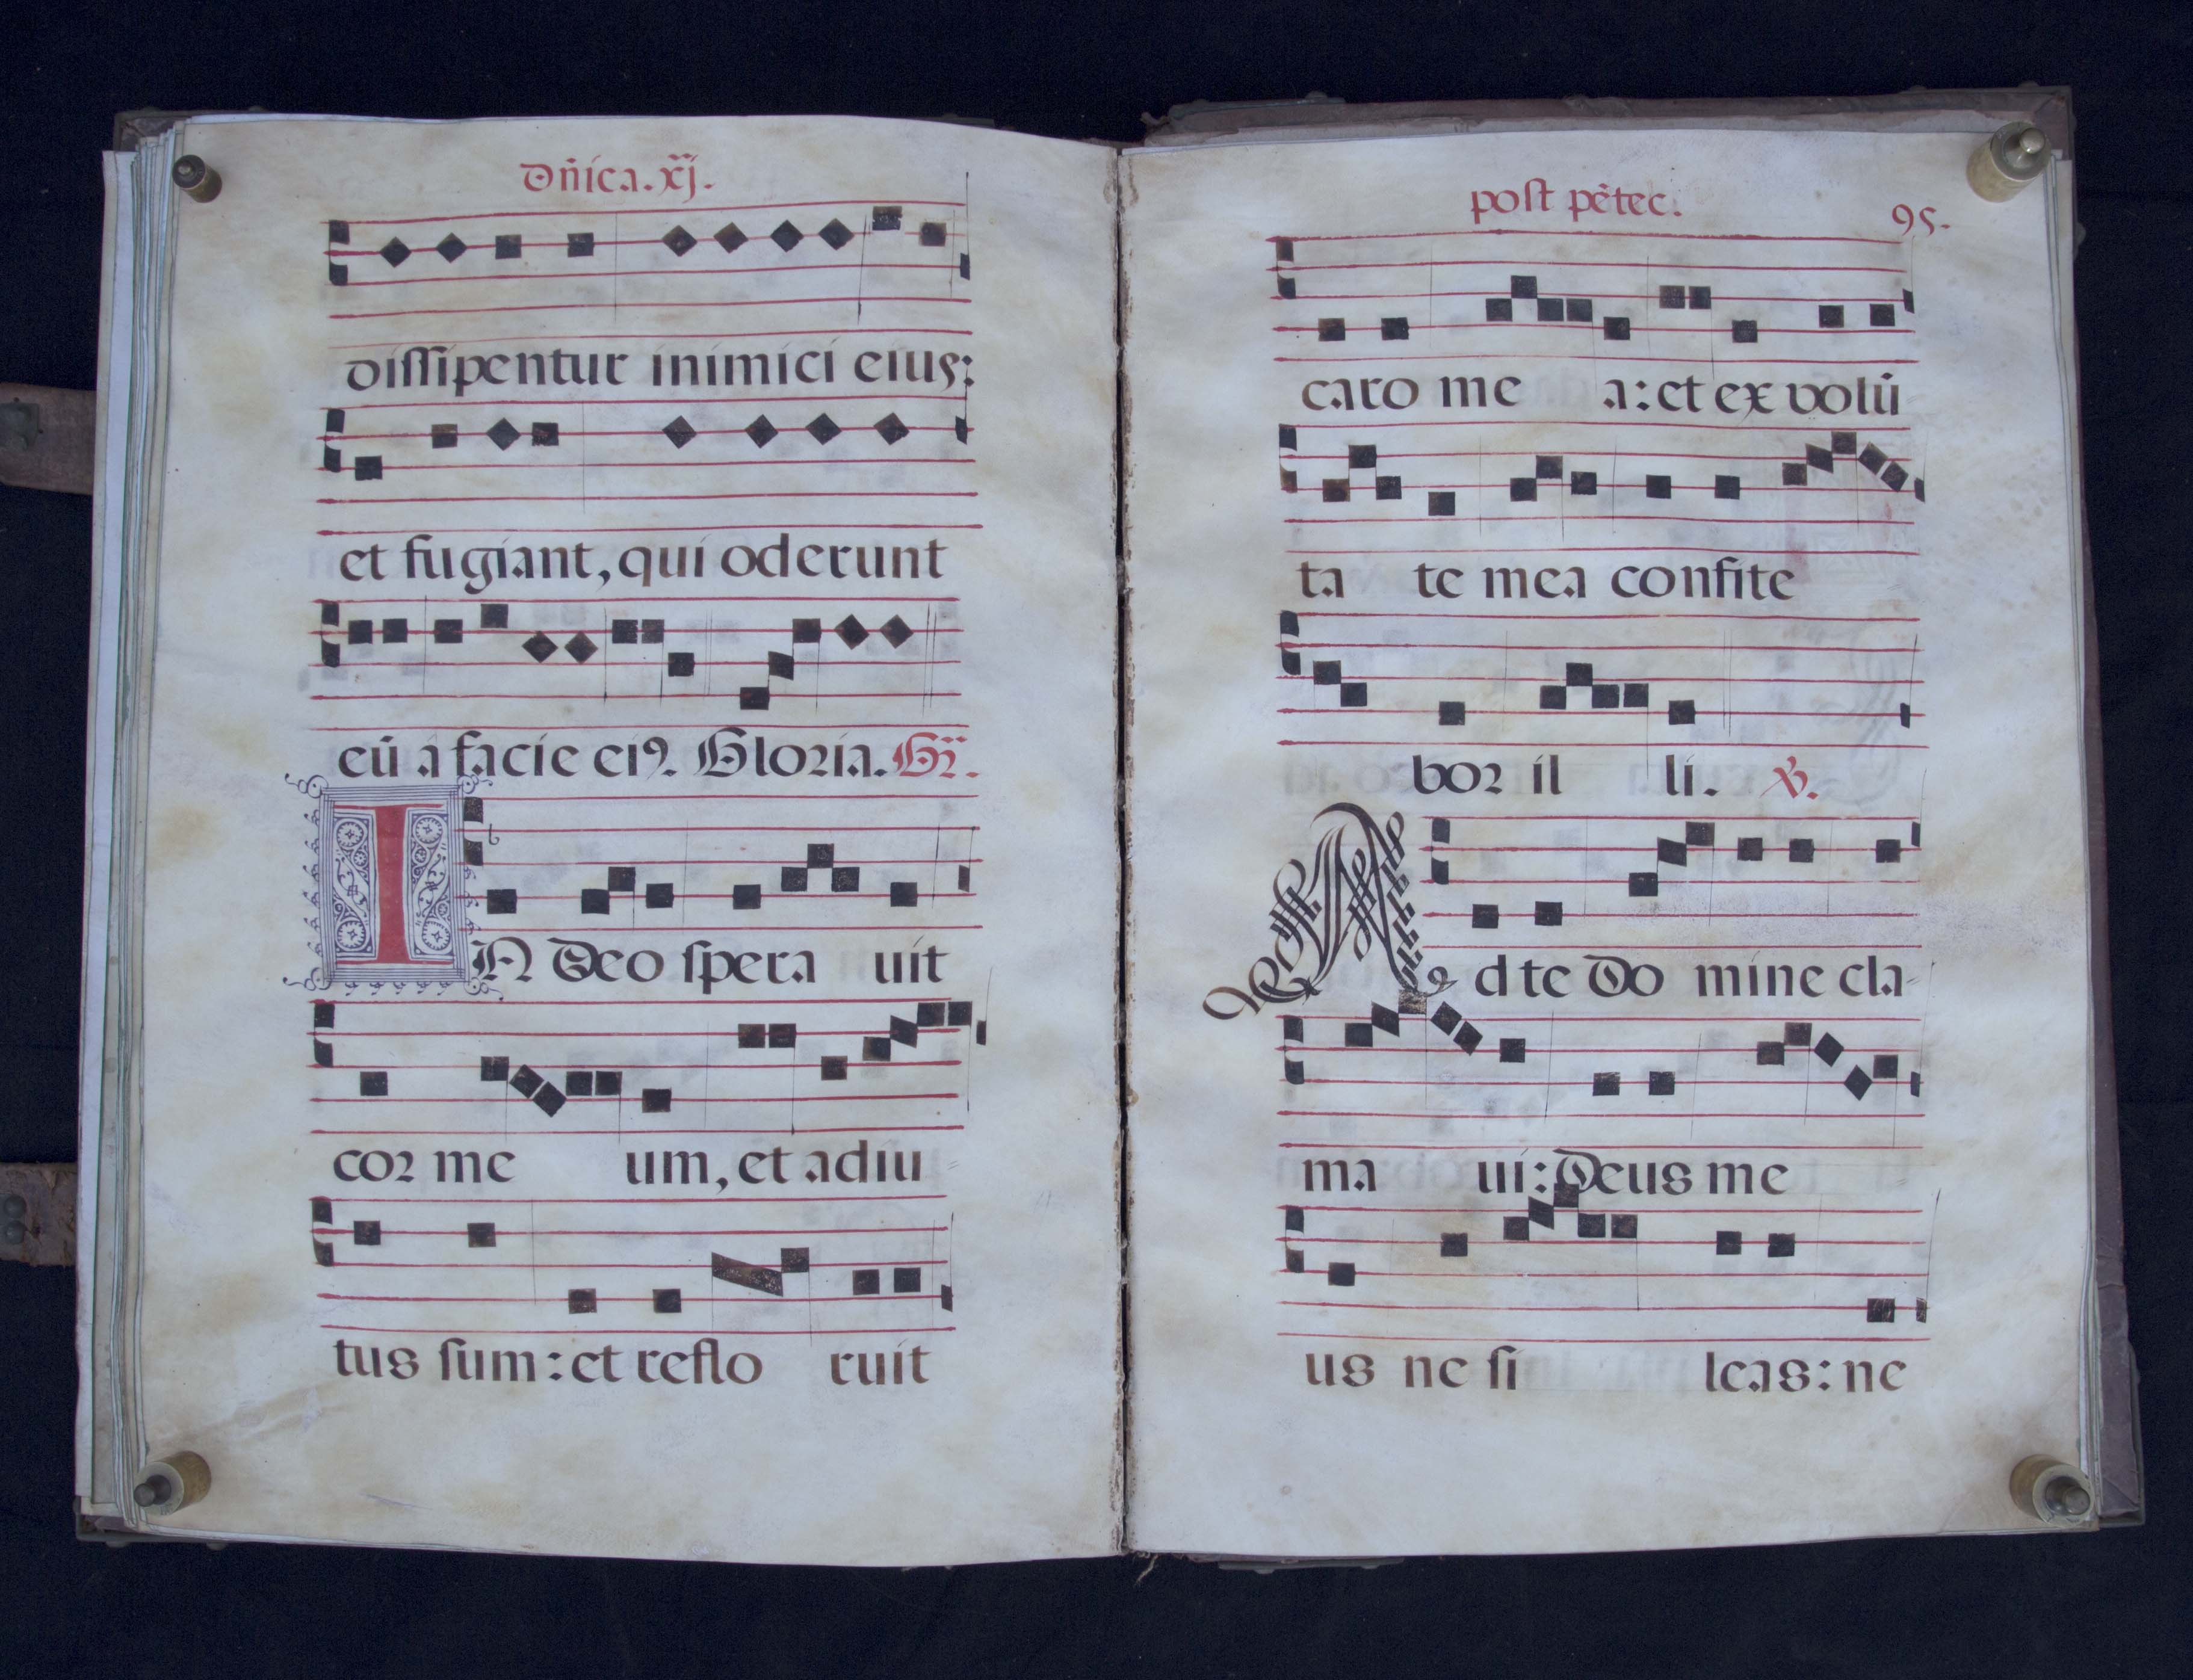 Dñica. xj.
dissipentur inimici eius:
et fugiant, qui oderunt
eū a facie ei9. Gloria. Gr̃.
IN Deo spera uit
cor me um, et adiu
tus sum: et reflo ruit
post pētec. 95.
caro me a: et ex volū
ta te mea confite
bor il li. ℣.
Ad te Do mine cla-
ma ui: Deus me
us ne si leas: ne